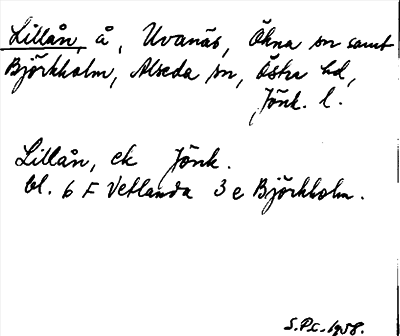 Lillån, å, Uvanäs, Ökna sn samt
Björkholm, Alseda sn, Östra hd,
Jönk. l.
Lillån, ek Jönk.
bl. 6 F Vetlanda 3 e Björkholm.
S.P.L. 1958.